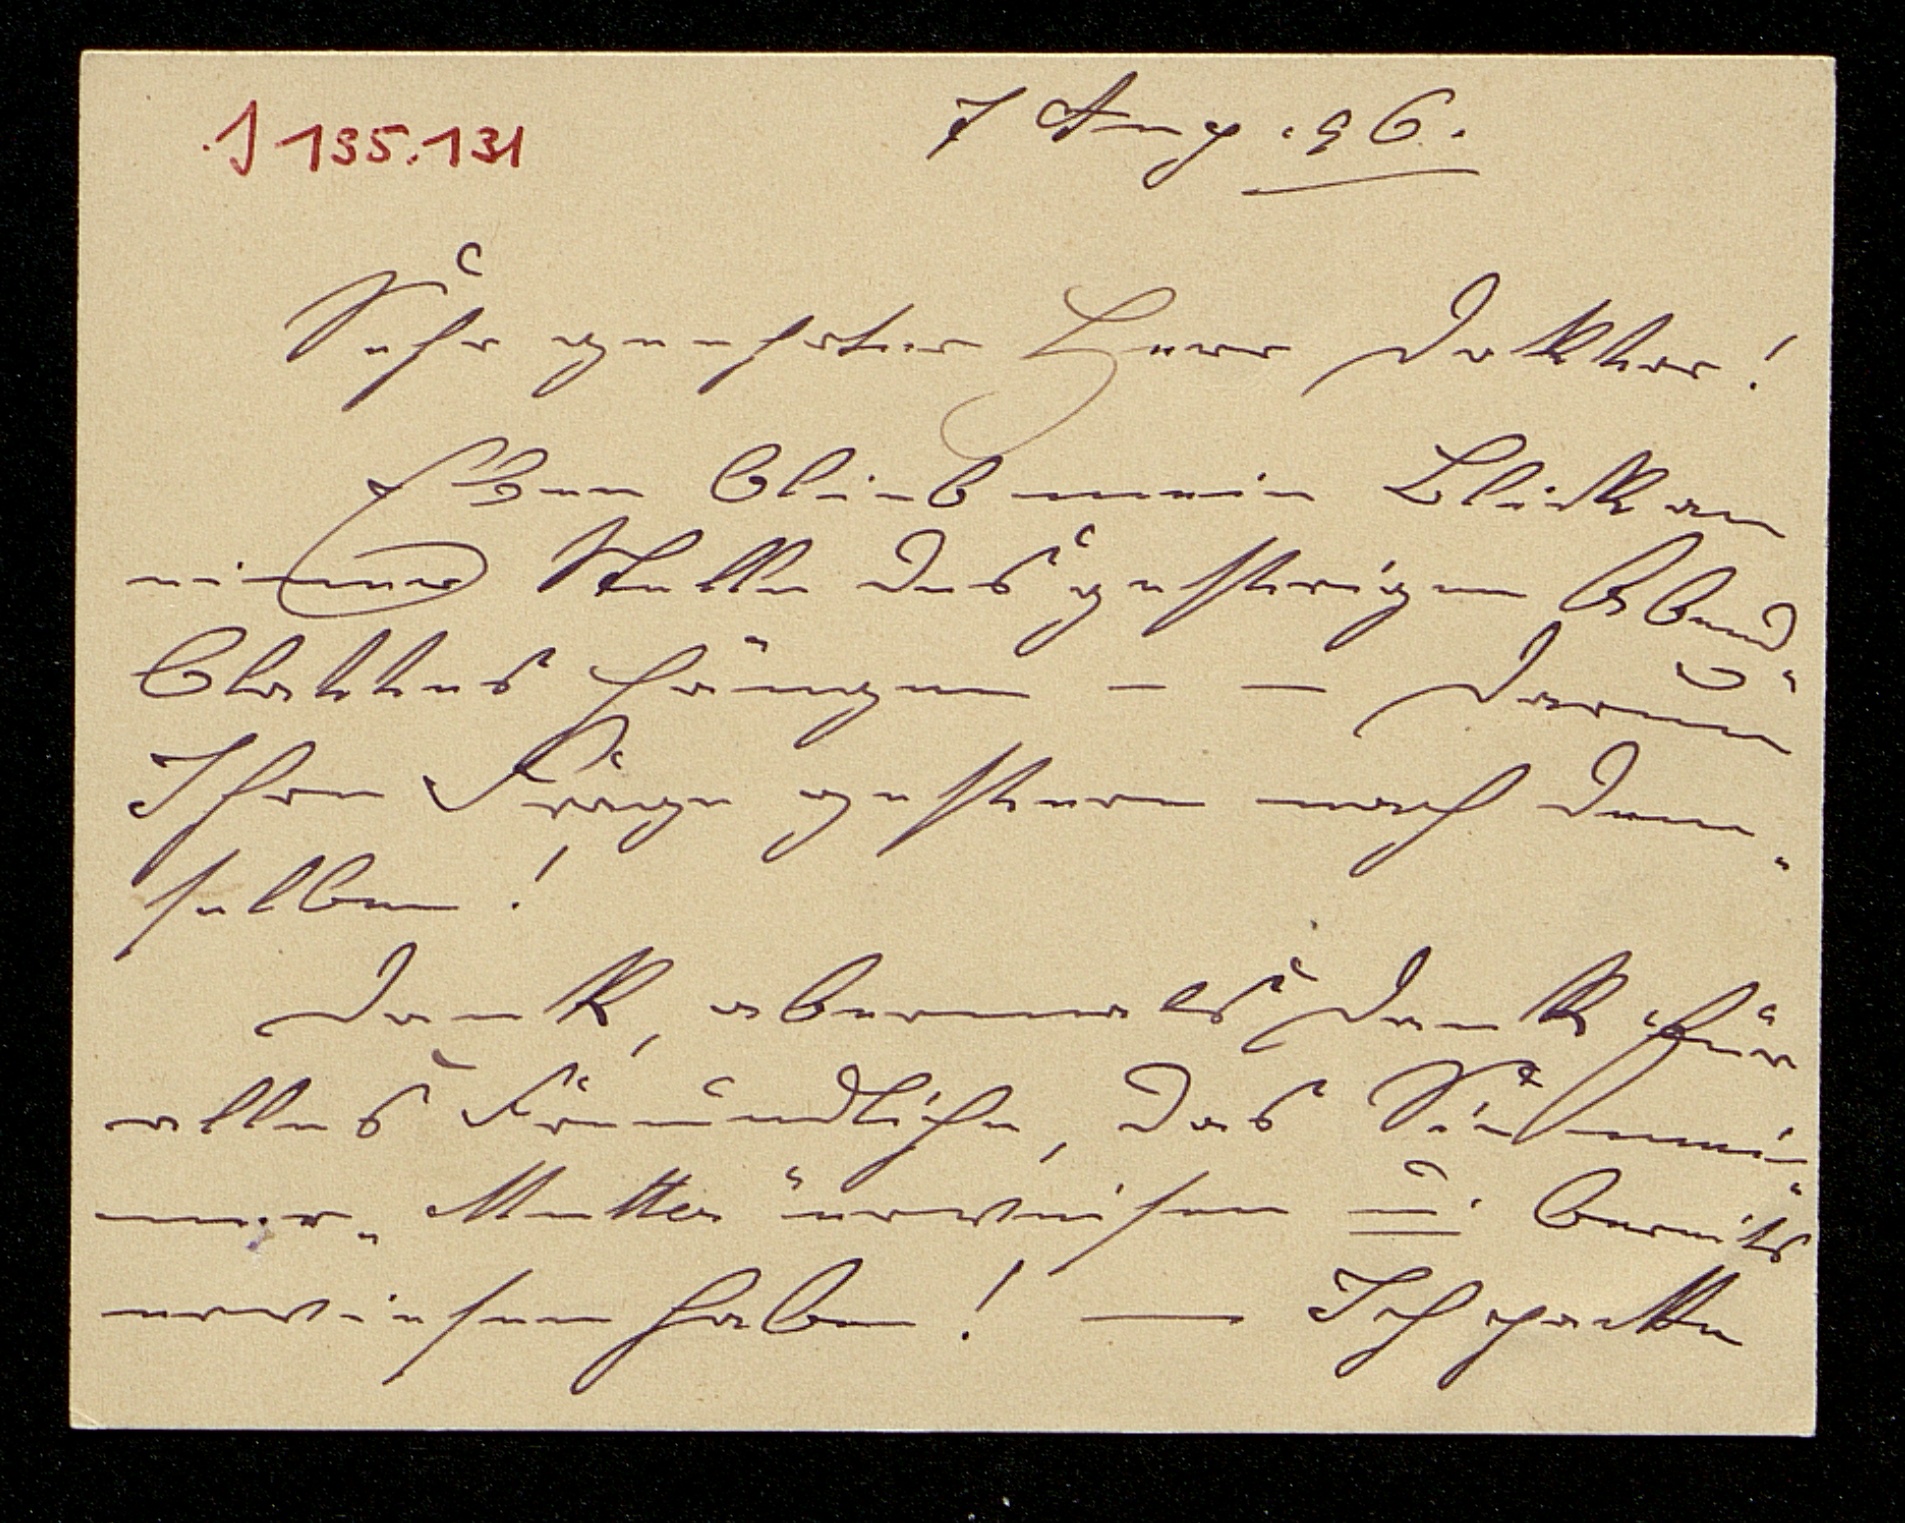 J 195.131
7 Aug. 96.
Sehr geehrter Herr Doktor!
Eben blieb mein Blick an
einer Stelle des gestrigen Abend„
blattes hängen – – Darum
Ihre Frage gestern nach dem„
selben!
Dank, abermals Dank für
alles Freundliche, das Sie mei„
ner„ Mutter erweisen u. bereits
erwiesen haben! — Ich packte